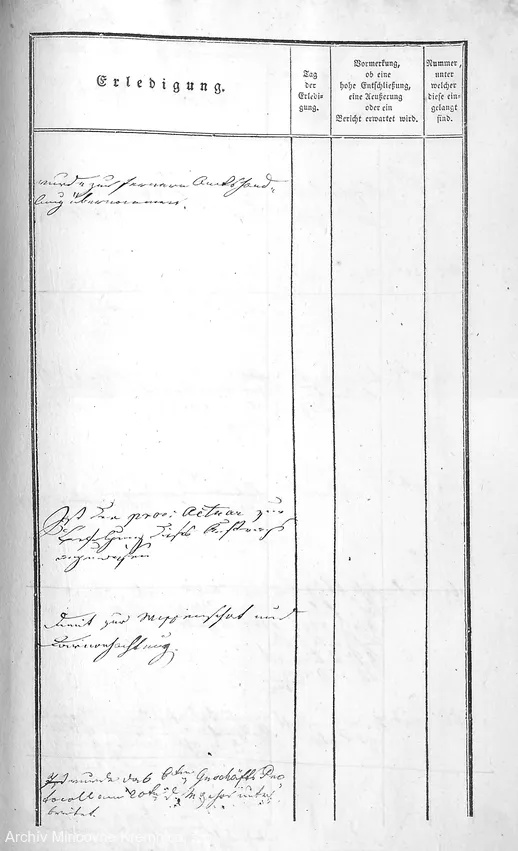 Erledigung.
Tag
der
Erledi-
gung.
Vormerkung,
ob eine
hohe Entschließung,
eine Aeußerung
oder ein
Bericht erwartet wird.
Nummer,
unter
welcher
diese ein-
gelangt
sind.
wird zur fernern Amtshand-
lung übernommen.
Ist der prov: Actuar zur
dieses
angewiesen
Dient zur Wissenschaft und
Ist wurde das 6ten Geschäfts Pro
tocoll am 20ten d. M.
breitet.
Archiv Mincovne Kremnica